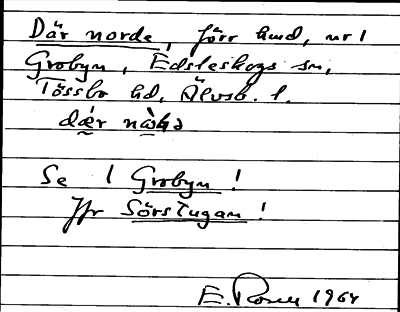 Där norde, förr hmd, nr 1
Grobyn, Edsleskogs sn,
Tössbo hd, Älvsb. l.
Se 1 Grobyn!
Jfr Sörstugan!
E. Rosen 1964